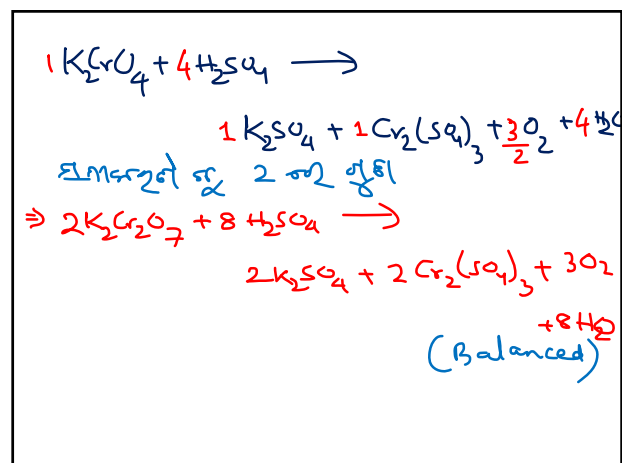 1 K₂CrO₄ + 4 H₂SO₄ ⟶
1 K₂SO₄ + 1 Cr₂(SO₄)₃ + 3/2 O₂ + 4 H₂O
2
⇒ 2K₂Cr₂O₇ + 8 H₂SO₄ ⟶
2K₂SO₄ + 2 Cr₂(SO₄)₃ + 3O₂
+8H₂O
(Balanced)